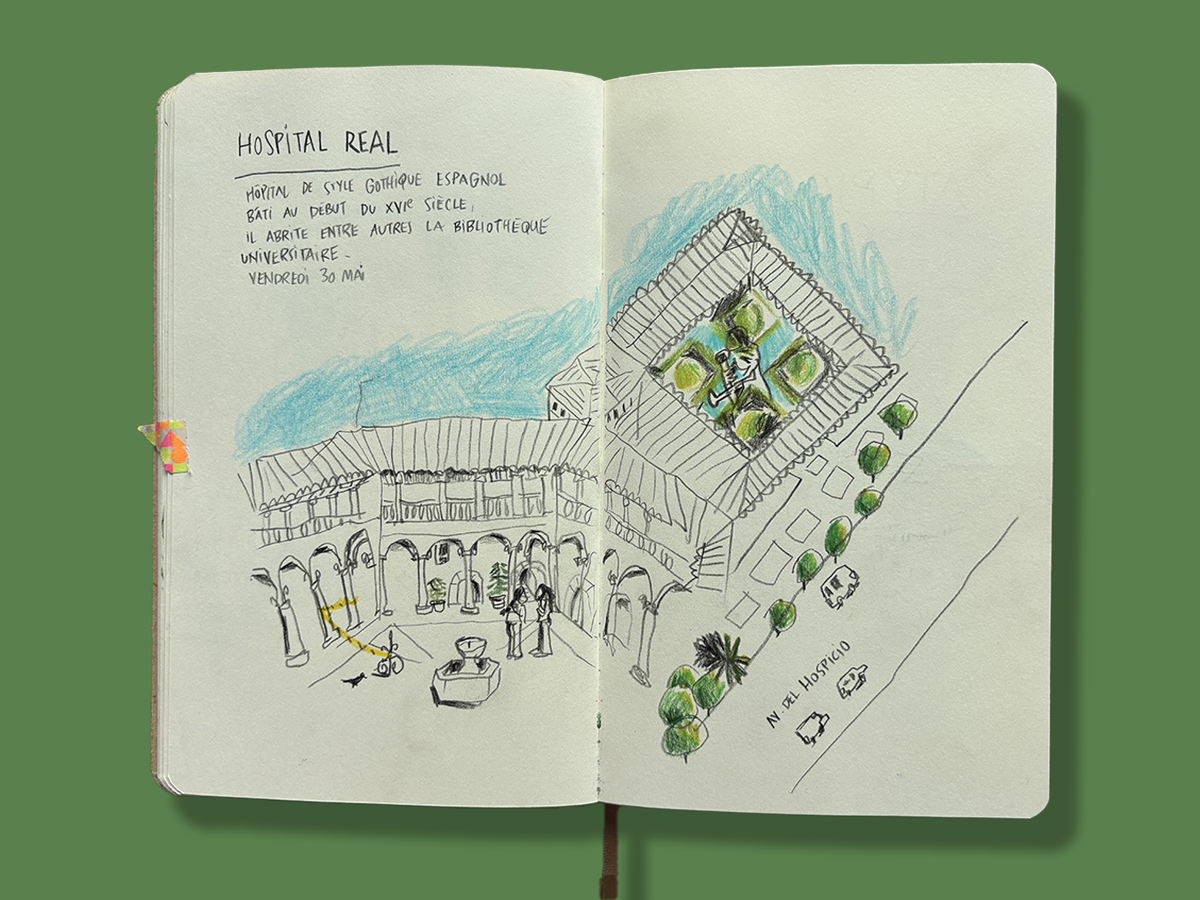 HOSPITAL REAL
HÔPITAL DE STYLE GOTHIQUE ESPAGNOL
BÂTI AU DÉBUT DU XVIe SIÈCLE,
IL ABRITE ENTRE AUTRES LA BIBLIOTHÈQUE
UNIVERSITAIRE -
VENDREDI 30 MAI
AV. DEL HOSPICIO